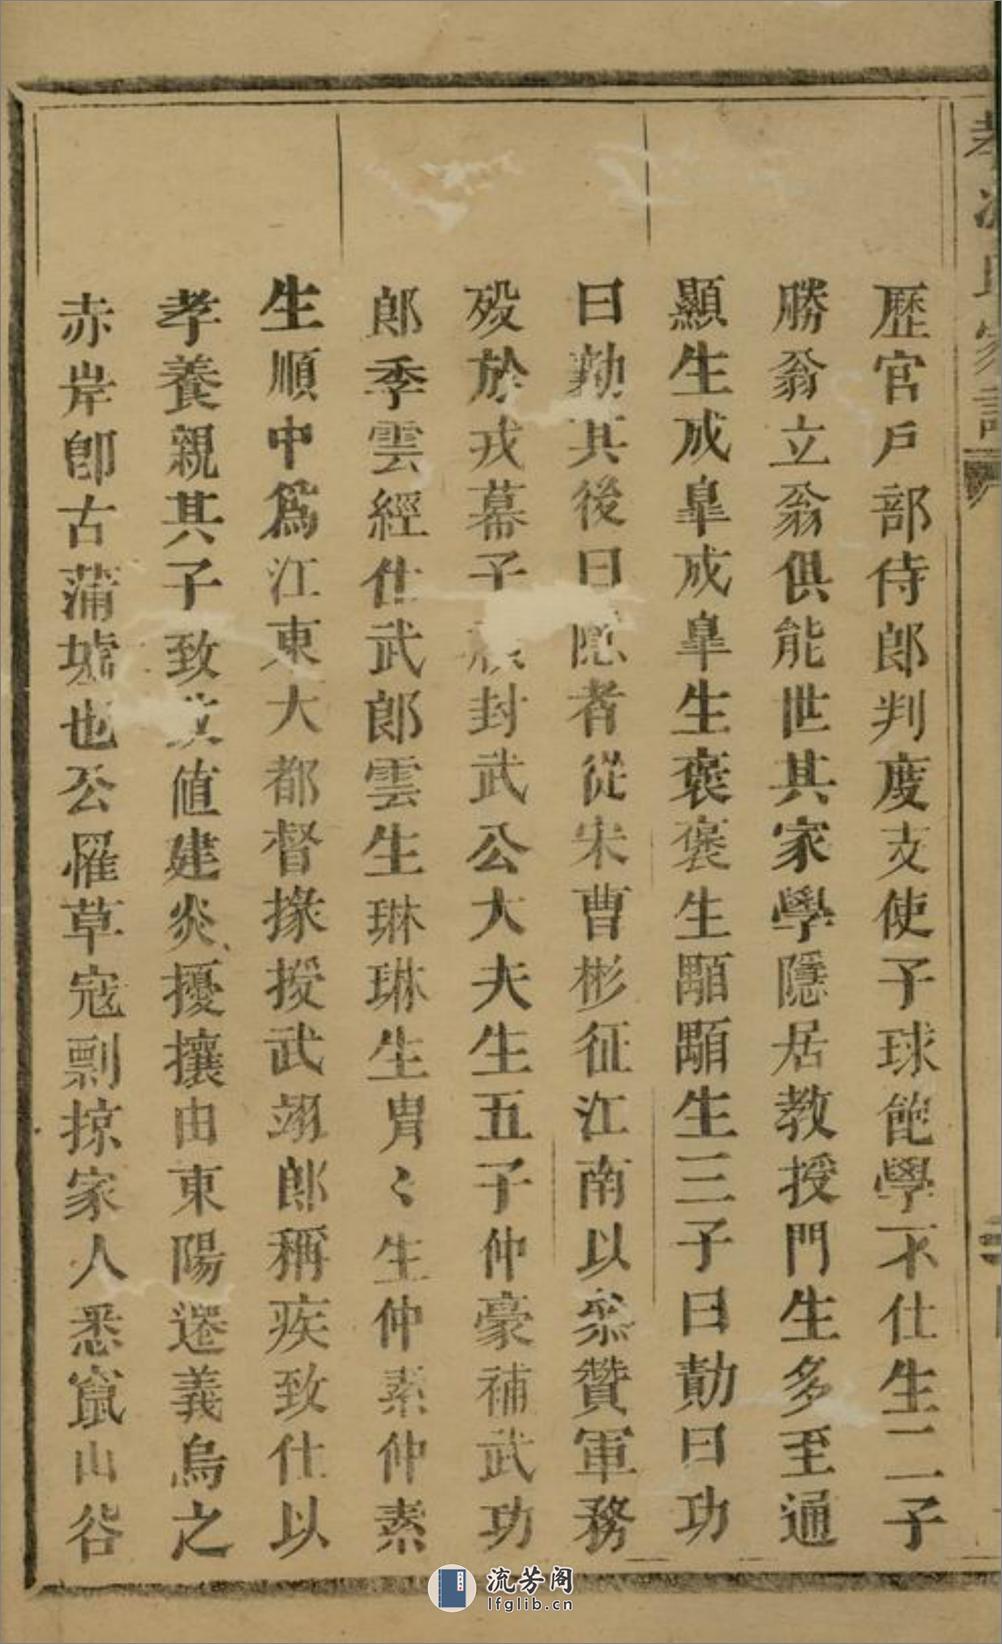 歷官戶部侍郎判度支使子球飽學不仕生二子
勝翁立翁俱能世其家學隱居教授門生多至通
顯生成臯成臯生褒褒生顒顒生三子曰勣曰功
曰勲其後曰隱者從宋曹彬征江南以叅贊軍務
歿於戎幕子封武公大夫生五子仲豪補武功
郎季雲經仕武郎雲生琳琳生胄〻生仲素仲素
生順中爲江東大都督掾授武翊郎稱疾致仕以
孝養親其子致值建炎擾攘由東陽遷義烏之
赤岸卽古蒲墟也公罹草寇剽掠家人悉竄山谷
氏家譜
流芳阁
lfglib.cn